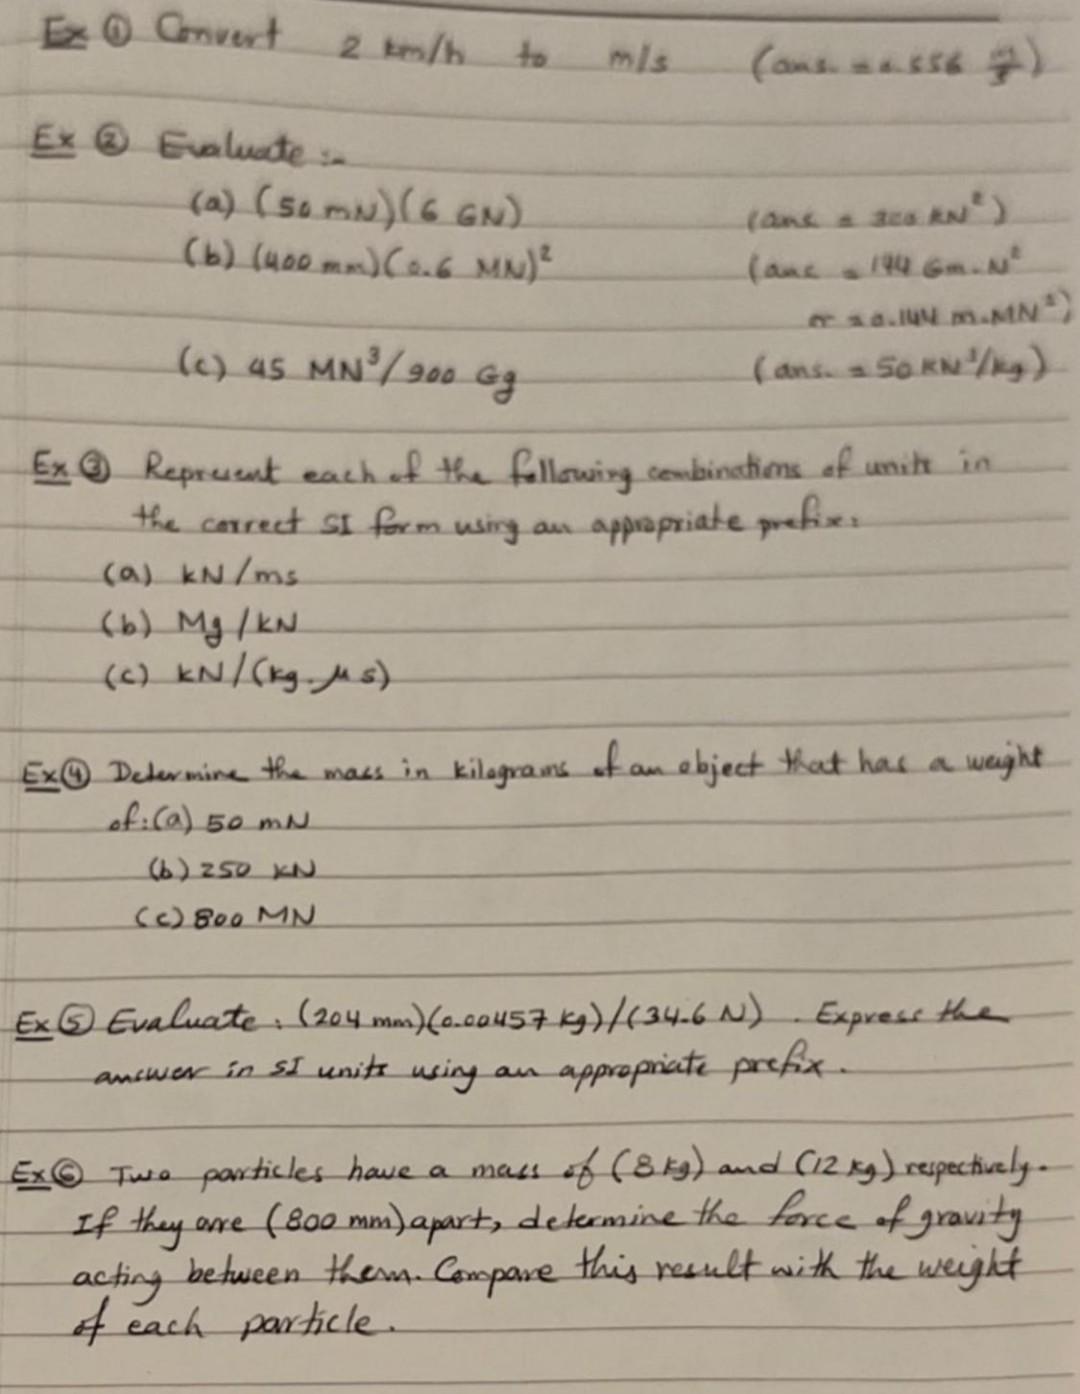 Ex ① Convert 2 km/h to m/s (ans. = 0.556 m/s)
Ex ② Evaluate :-
(a) (50 mN)(6 GN) (ans = 300 kN²)
(b) (400 mm)(0.6 MN)² (ans = 144 Gm.N²
or = 0.144 m.MN²)
(c) 45 MN³/900 Gg (ans. = 50 kN³/kg)
Ex ③ Represent each of the following combinations of units in
the correct SI form using an appropriate prefix:
(a) kN/ms
(b) Mg/kN
(c) kN/(kg.μs)
Ex ④ Determine the mass in kilograms of an object that has a weight
of: (a) 50 mN
(b) 250 kN
(c) 800 MN
Ex ⑤ Evaluate : (204 mm)(0.00457 kg)/(34.6 N) . Express the
answer in SI units using an appropriate prefix .
Ex ⑥ Two particles have a mass of (8 kg) and (12 kg) respectively.
If they are (800 mm) apart, determine the force of gravity
acting between them. Compare this result with the weight
of each particle .